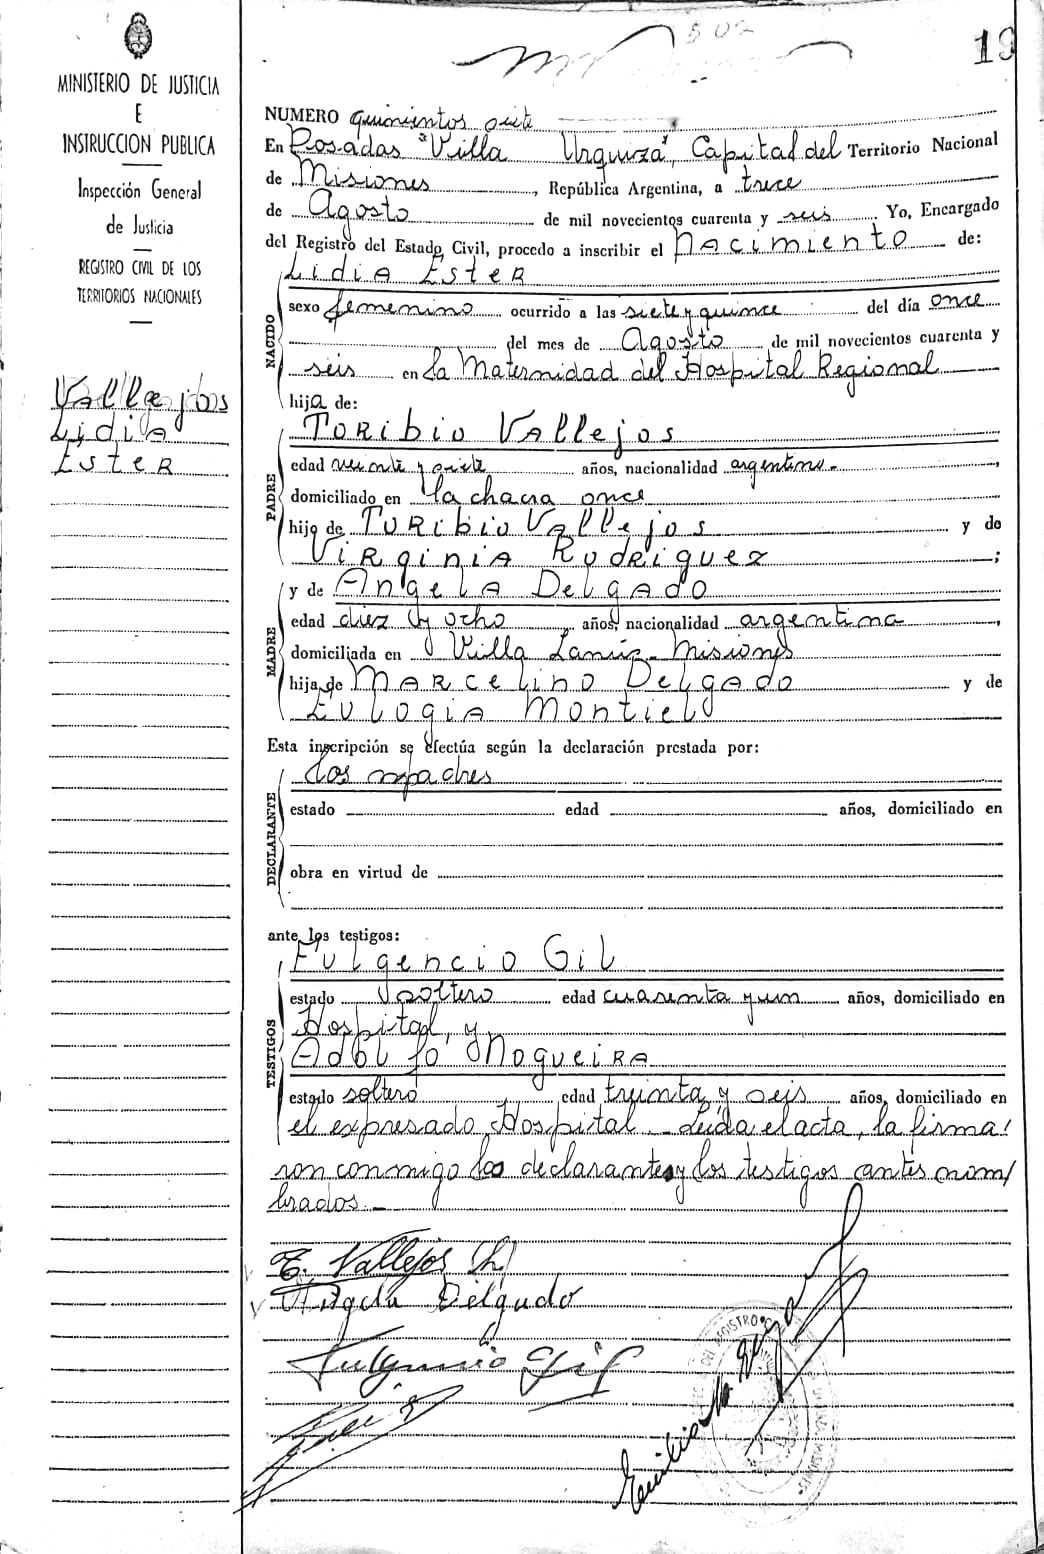 507
19
MINISTERIO DE JUSTICIA
E
INSTRUCCION PUBLICA
Inspección General
de Justicia
REGISTRO CIVIL DE LOS
TERRITORIOS NACIONALES
Vallejos
Lidia
Ester
NUMERO quinientos siete
En Posadas "Villa Urquiza", Capital del Territorio Nacional
de Misiones, República Argentina, a trece
de Agosto de mil novecientos cuarenta y seis. Yo, Encargado
del Registro del Estado Civil, procedo a inscribir el nacimiento de:
NACIDO
Lidia Ester
sexo femenino ocurrido a las siete y quince del día once
del mes de Agosto de mil novecientos cuarenta y
seis en la Maternidad del Hospital Regional
hija de:
PADRE
Toribio Vallejos
edad veinte y siete años, nacionalidad argentino,
domiciliado en la chacra once
hijo de Toribio Vallejos y de
Virginia Rodriguez;
MADRE
y de Angela Delgado
edad diez y ocho años, nacionalidad argentina,
domiciliada en Villa Lanús - Misiones
hija de Marcelino Delgado y de
Eulogia Montiel
Esta inscripción se efectúa según la declaración prestada por:
DECLARANTE
los padres
estado edad años, domiciliado en
obra en virtud de
ante los testigos:
TESTIGOS
Fulgencio Gil
estado soltero edad cuarenta y un años, domiciliado en
Hospital, y
Adolfo Nogueira
estado soltero edad treinta y seis años, domiciliado en
el expresado Hospital. Leida el acta, la firma/
ron conmigo los declarantes y los testigos antes nom/
brados.
T. Vallejos (h)
Angela Delgado
Fulgencio Gil
Emilio